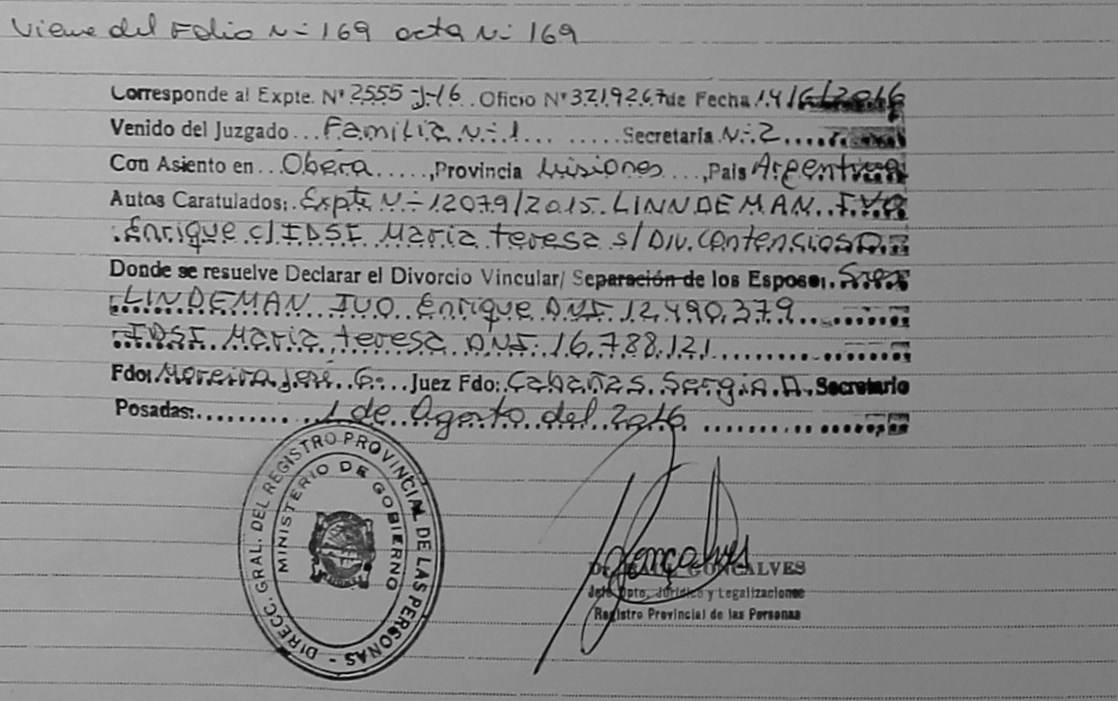 Viene del Folio N- 169 acta N- 169
Corresponde al Expte. N° 2555-J-16. Oficio N° 3219267 de Fecha 14/6/2016
Venido del Juzgado... Familia N-1... ......Secretaría N-2......
Con Asiento en...Oberá.....,Provincia Misiones....,País Argentina
Autos Caratulados: Expte N-12079/2015. LINNDEMAN. IVO
Enrique c/IDSI Maria teresa s/Div. Contencioso.
Donde se resuelve Declarar el Divorcio Vincular/ Separación de los Esposos: Sres
LINDEMAN IVO Enrique DNI 12.490.379
IDSI Maria teresa DNI: 16.788.121
Fdo: Moreira José G. Juez Fdo: Cabañas Sergio A. Secretario
Posadas: 1 de Agosto del 2016
DIRECC. GRAL. DEL REGISTRO PROVINCIAL DE LAS PERSONAS -
MINISTERIO DE GOBIERNO
Goncalves
GONCALVES
Jefe Dpto. Jurídico y Legalizaciones
Registro Provincial de las Personas